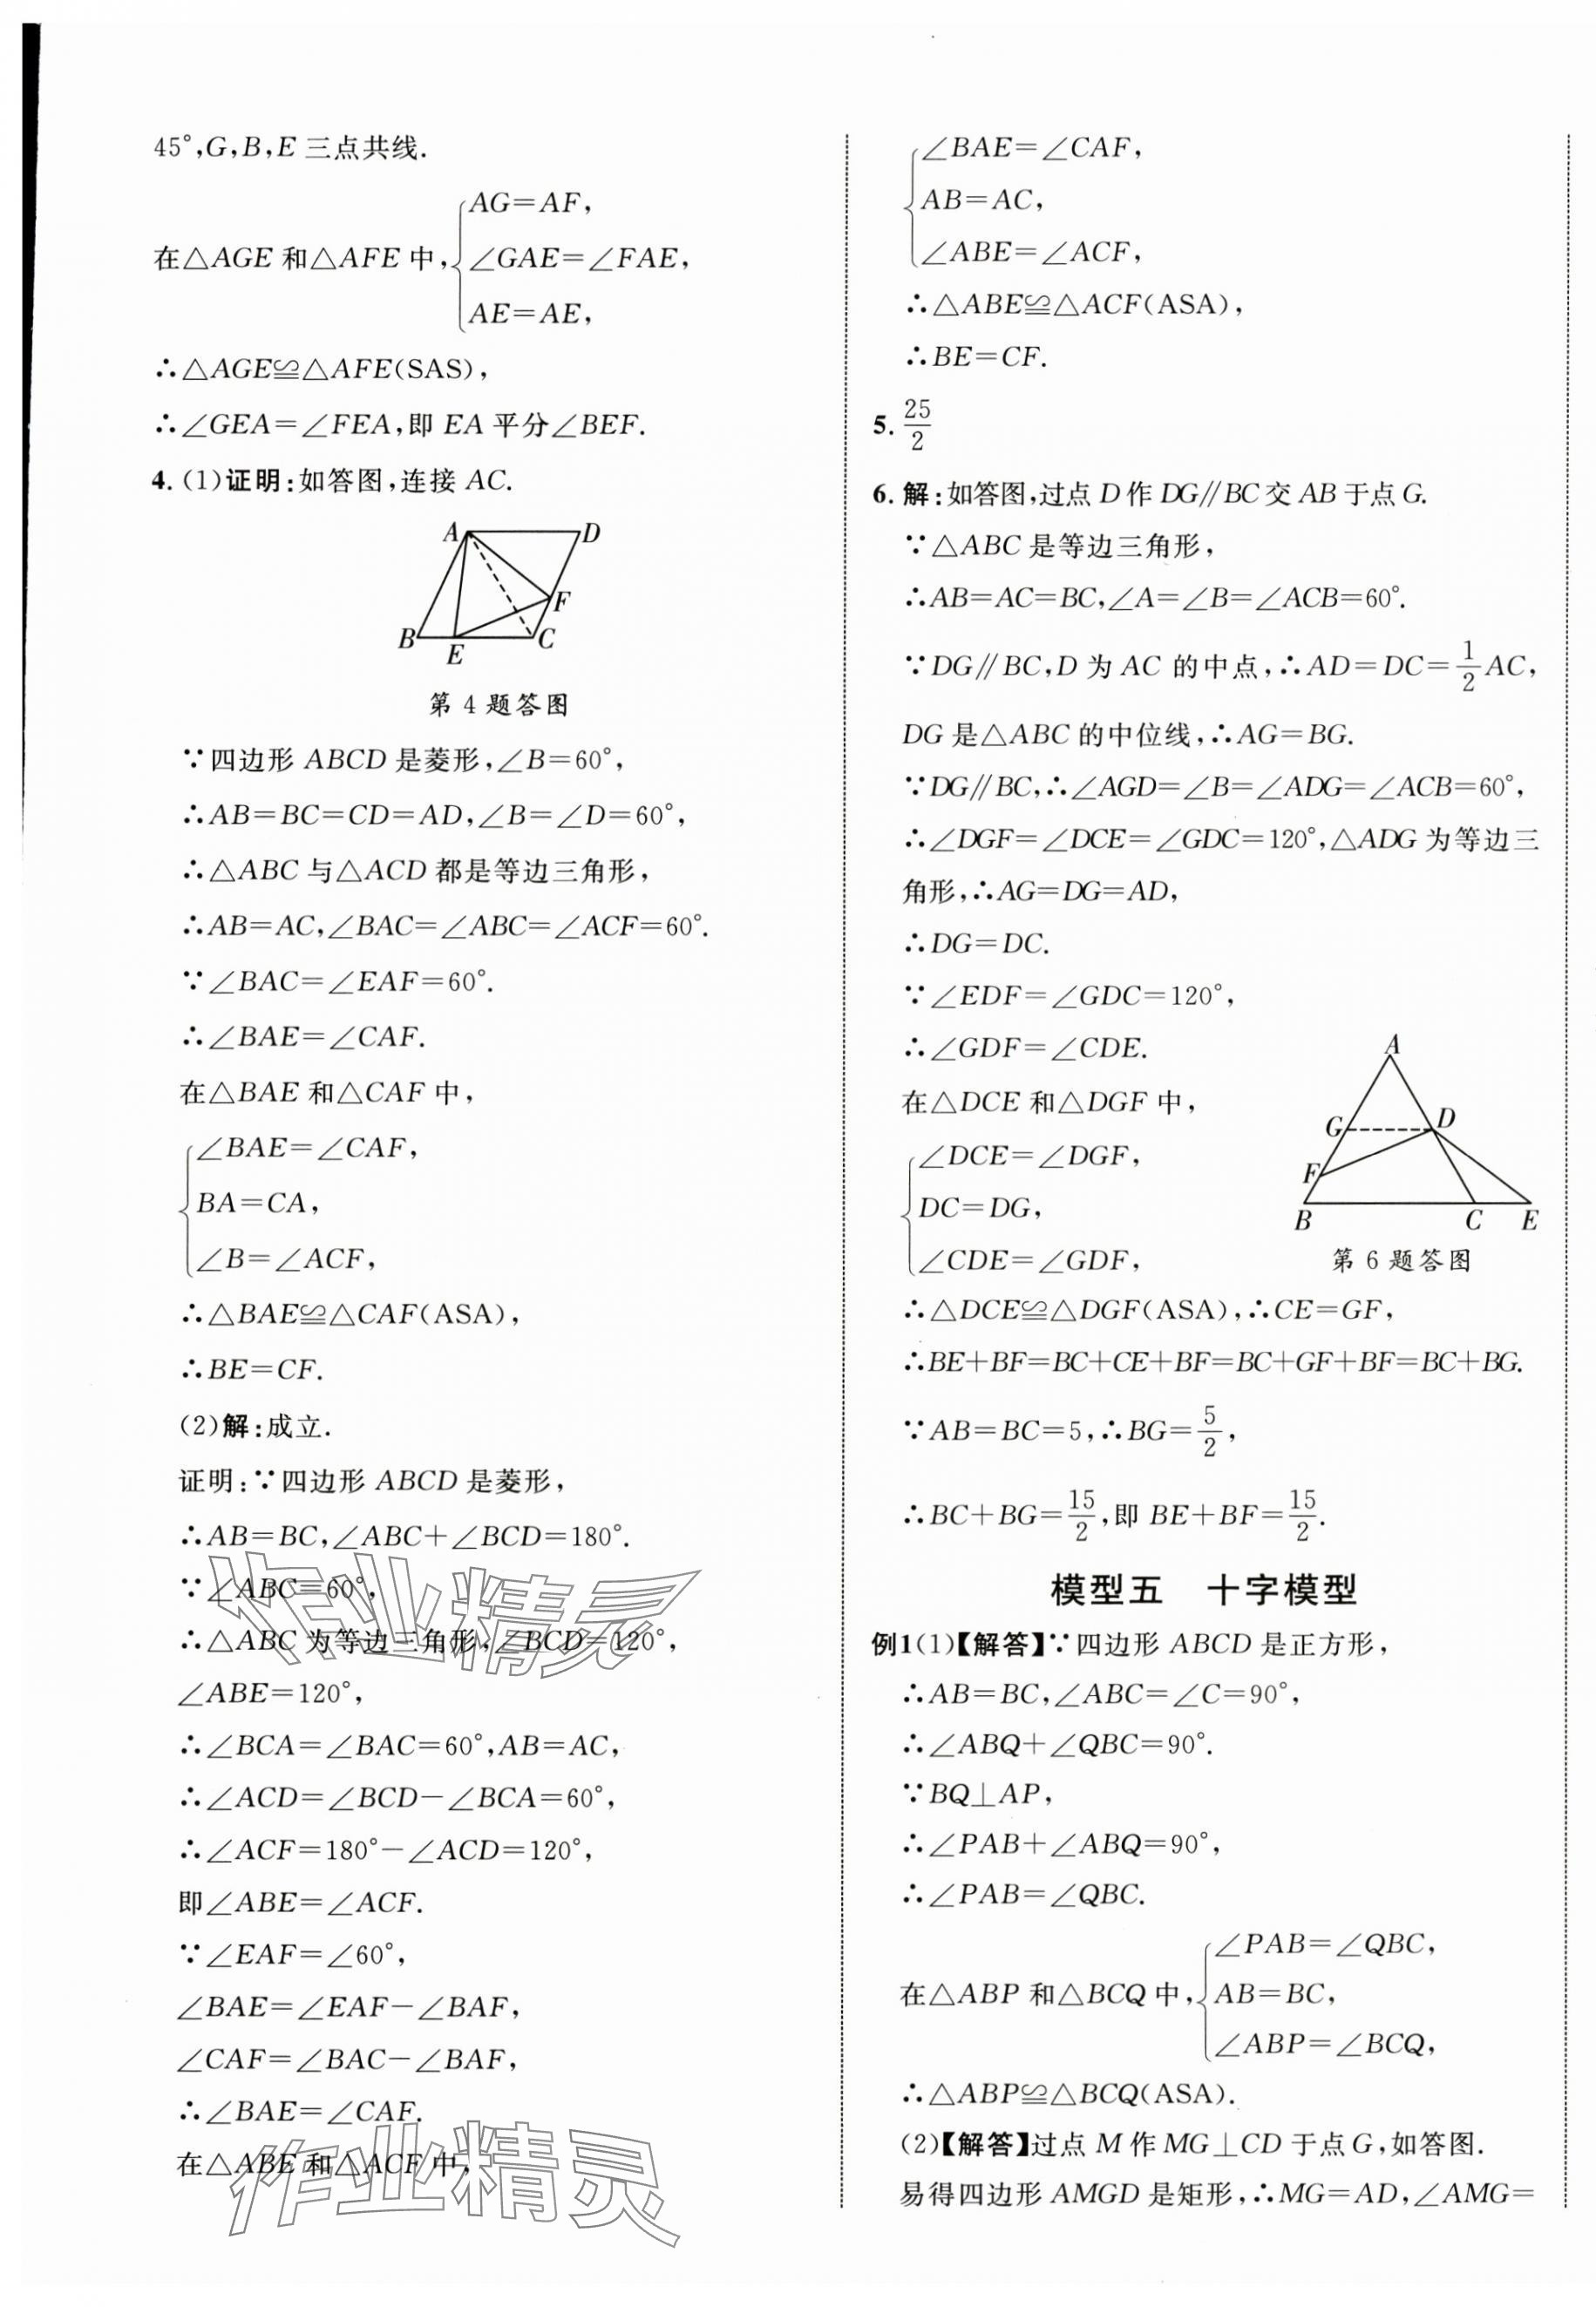 45°,G,B,E 三点共线.
在△AGE 和△AFE 中,{AG=AF,
∠GAE=∠FAE,
AE=AE,
∴△AGE≌△AFE(SAS),
∴∠GEA=∠FEA,即 EA 平分∠BEF.
4. (1)证明:如答图,连接 AC.
A D
F
B E C
第 4 题答图
∵四边形 ABCD 是菱形,∠B=60°,
∴AB=BC=CD=AD,∠B=∠D=60°,
∴△ABC 与△ACD 都是等边三角形,
∴AB=AC,∠BAC=∠ABC=∠ACF=60°.
∵∠BAC=∠EAF=60°.
∴∠BAE=∠CAF.
在△BAE 和△CAF 中,
{∠BAE=∠CAF,
BA=CA,
∠B=∠ACF,
∴△BAE≌△CAF(ASA),
∴BE=CF.
(2)解:成立.
证明:∵四边形 ABCD 是菱形,
∴AB=BC,∠ABC+∠BCD=180°.
∵∠ABC=60°,
∴△ABC 为等边三角形,∠BCD=120°,
∠ABE=120°,
∴∠BCA=∠BAC=60°,AB=AC,
∴∠ACD=∠BCD-∠BCA=60°,
∴∠ACF=180°-∠ACD=120°,
即∠ABE=∠ACF.
∵∠EAF=∠60°,
∠BAE=∠EAF-∠BAF,
∠CAF=∠BAC-∠BAF,
∴∠BAE=∠CAF.
在△ABE 和△ACF 中,
作业精灵
作业精灵
{∠BAE=∠CAF,
AB=AC,
∠ABE=∠ACF,
∴△ABE≌△ACF(ASA),
∴BE=CF.
5. 25/2
6. 解:如答图,过点 D 作 DG∥BC 交 AB 于点 G.
∵△ABC 是等边三角形,
∴AB=AC=BC,∠A=∠B=∠ACB=60°.
∵DG∥BC,D 为 AC 的中点,∴AD=DC=1/2AC,
DG 是△ABC 的中位线,∴AG=BG.
∵DG∥BC,∴∠AGD=∠B=∠ADG=∠ACB=60°,
∴∠DGF=∠DCE=∠GDC=120°,△ADG 为等边三
角形,∴AG=DG=AD,
∴DG=DC.
∵∠EDF=∠GDC=120°,
∴∠GDF=∠CDE.
在△DCE 和△DGF 中,
{∠DCE=∠DGF,
DC=DG,
∠CDE=∠GDF,
A
G D
F
B C E
第 6 题答图
∴△DCE≌△DGF(ASA),∴CE=GF,
∴BE+BF=BC+CE+BF=BC+GF+BF=BC+BG.
∵AB=BC=5,∴BG=5/2,
∴BC+BG=15/2,即 BE+BF=15/2.
模型五 十字模型
例1(1)【解答】∵四边形 ABCD 是正方形,
∴AB=BC,∠ABC=∠C=90°,
∴∠ABQ+∠QBC=90°.
∵BQ⊥AP,
∴∠PAB+∠ABQ=90°,
∴∠PAB=∠QBC.
在△ABP 和△BCQ 中,{∠PAB=∠QBC,
AB=BC,
∠ABP=∠BCQ,
∴△ABP≌△BCQ(ASA).
(2)【解答】过点 M 作 MG⊥CD 于点 G,如答图.
易得四边形 AMGD 是矩形,∴MG=AD,∠AMG=